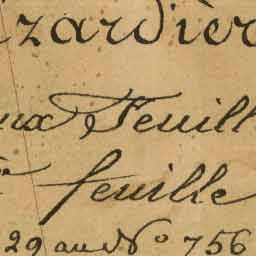 izardièr
eux Feuill
re feuille
29 au N° 756